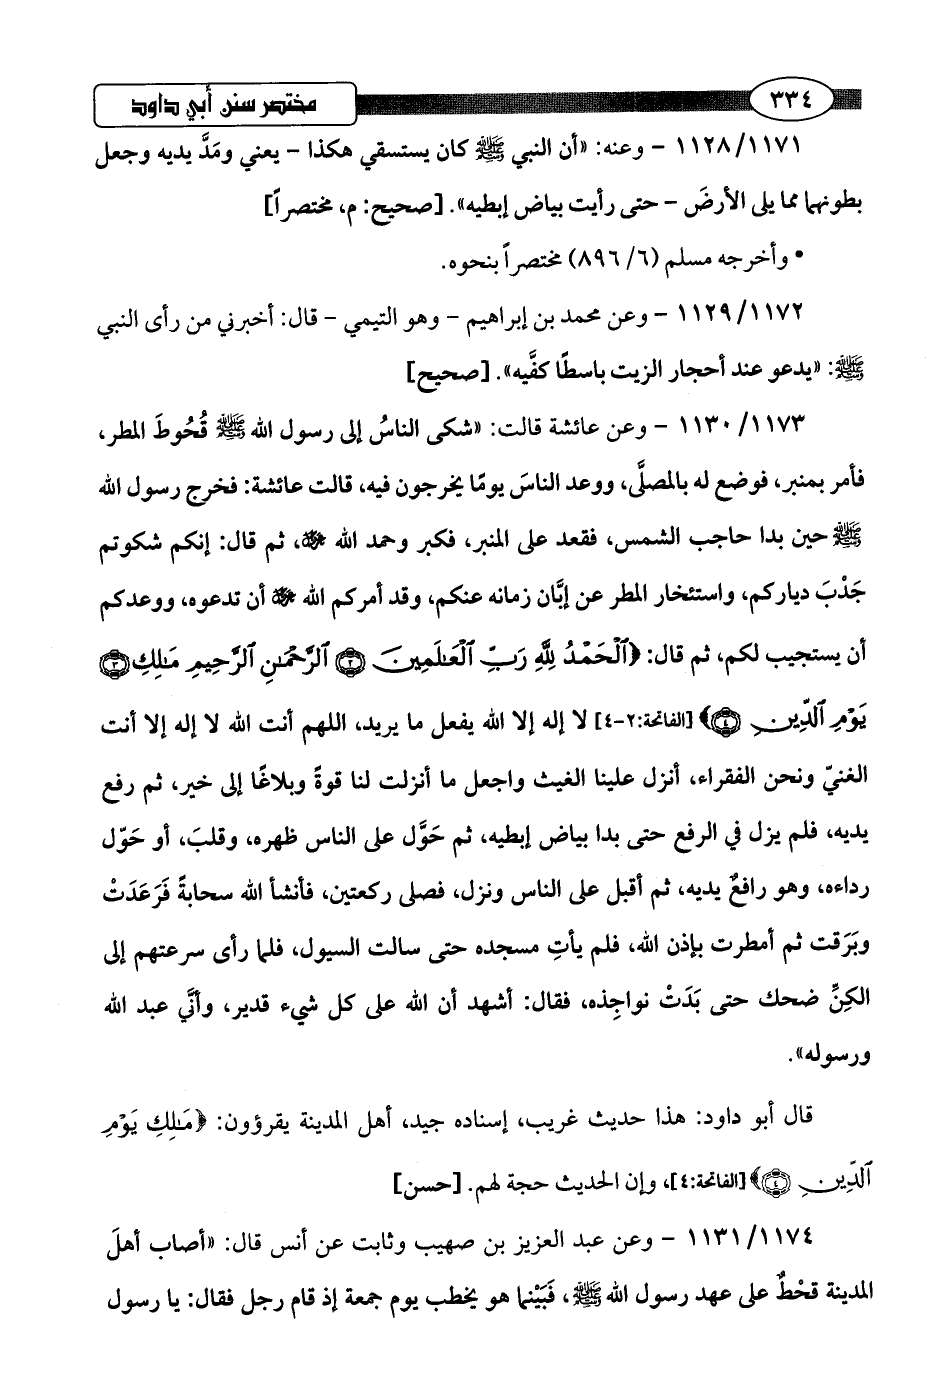 ٣٣٤
مختصر سنن أبي داود
١١٢٨/١١٧١ - وعنه: «أن النبي ﷺ كان يستسقي هكذا - يعني ومَدَّ يديه وجعل
بطونهما مما يلي الأرضَ - حتى رأيت بياض إبطيه». [صحيح: م، مختصراً]
• وأخرجه مسلم (٦/ ٨٩٦) مختصراً بنحوه.
١١٢٩/١١٧٢ - وعن محمد بن إبراهيم - وهو التيمي - قال: أخبرني من رأى النبي
ﷺ: «يدعو عند أحجار الزيت باسطًا كفَّيه». [صحيح]
١١٣٠/١١٧٣ - وعن عائشة قالت: «شكى الناسُ إلى رسول الله ﷺ قُحُوطَ المطر،
فأمر بمنبر، فوضع له بالمصلَّى، ووعد الناسَ يومًا يخرجون فيه، قالت عائشة: فخرج رسول الله
ﷺ حين بدا حاجب الشمس، فقعد على المنبر، فكبر وحمد الله ﷻ، ثم قال: إنكم شكوتم
جَدْبَ دياركم، واستئخار المطر عن إبَّان زمانه عنكم، وقد أمركم الله ﷻ أن تدعوه، ووعدكم
أن يستجيب لكم، ثم قال: ﴿اَلْحَمْدُ لِلَّهِ رَبِّ اَلْعَٰلَمِينَ ۝٢ اَلرَّحْمَٰنِ اَلرَّحِيمِ ۝٣ مَٰلِكِ
يَوْمِ اَلدِّينِ ۝٤﴾ [الفاتحة:٢-٤] لا إله إلا الله يفعل ما يريد، اللهم أنت الله لا إله إلا أنت
الغنيّ ونحن الفقراء، أنزل علينا الغيث واجعل ما أنزلت لنا قوةً وبلاغًا إلى خير، ثم رفع
يديه، فلم يزل في الرفع حتى بدا بياض إبطيه، ثم حَوَّل على الناس ظهره، وقلبَ، أو حَوّل
رداءه، وهو رافعٌ يديه، ثم أقبل على الناس ونزل، فصلى ركعتين، فأنشأ الله سحابةً فَرَعَدَتْ
وبَرَقت ثم أمطرت بإذن الله، فلم يأتِ مسجده حتى سالت السيول، فلما رأى سرعتهم إلى
الكِنِّ ضحك حتى بَدَتْ نواجِذه، فقال: أشهد أن الله على كل شيء قدير، وأنَّي عبد الله
ورسوله».
قال أبو داود: هذا حديث غريب، إسناده جيد، أهل المدينة يقرؤون: ﴿مَٰلِكِ يَوْمِ
اَلدِّينِ ۝٤﴾ [الفاتحة:٤]، وإن الحديث حجة لهم. [حسن]
١١٣١/١١٧٤ - وعن عبد العزيز بن صهيب وثابت عن أنس قال: «أصاب أهلَ
المدينة قحْطٌ على عهد رسول الله ﷺ، فَبَيْنما هو يخطب يوم جمعة إذ قام رجل فقال: يا رسول